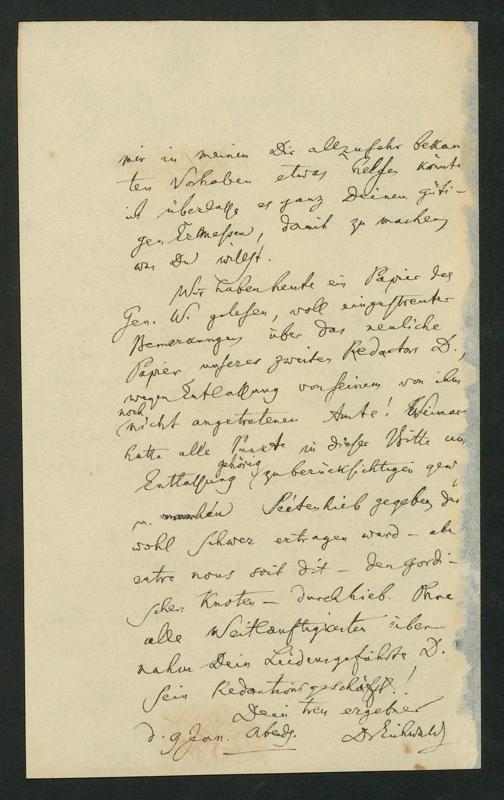 mir in meinen Dir allzusehr bekan
ten Vorhaben etwas helfen könnte
ich überlasse es ganz Deinem güti-
gen Ermessen, damit zu machen,
was Du willst.
Wir haben heute ein Papier des
Gen. W. gelesen, voll eingestreuter
Bemerkungen über das neuliche
Papier unseres zweiten Redactors D.,
wegen Entlassung von seinem von ihm
noch
nicht angetretenen Amte! Weimarn
hatte alle Punkte in dieser Bitte um
gehörig
Entlassung zu berücksichtigen gew
u. manchen Seitenhieb gegeben, der
wohl schwer ertragen ward – aber
entre nous soit dit – den gordi-
schen Knoten – durchhieb. Ohne
alle Weitläuftigkeiten über-
nahm Dein Leidensgefährte D.
sein Redactionsgeschäft!
Dein treu ergebner
d. 9 Jan. Abends. Dr Eichwald